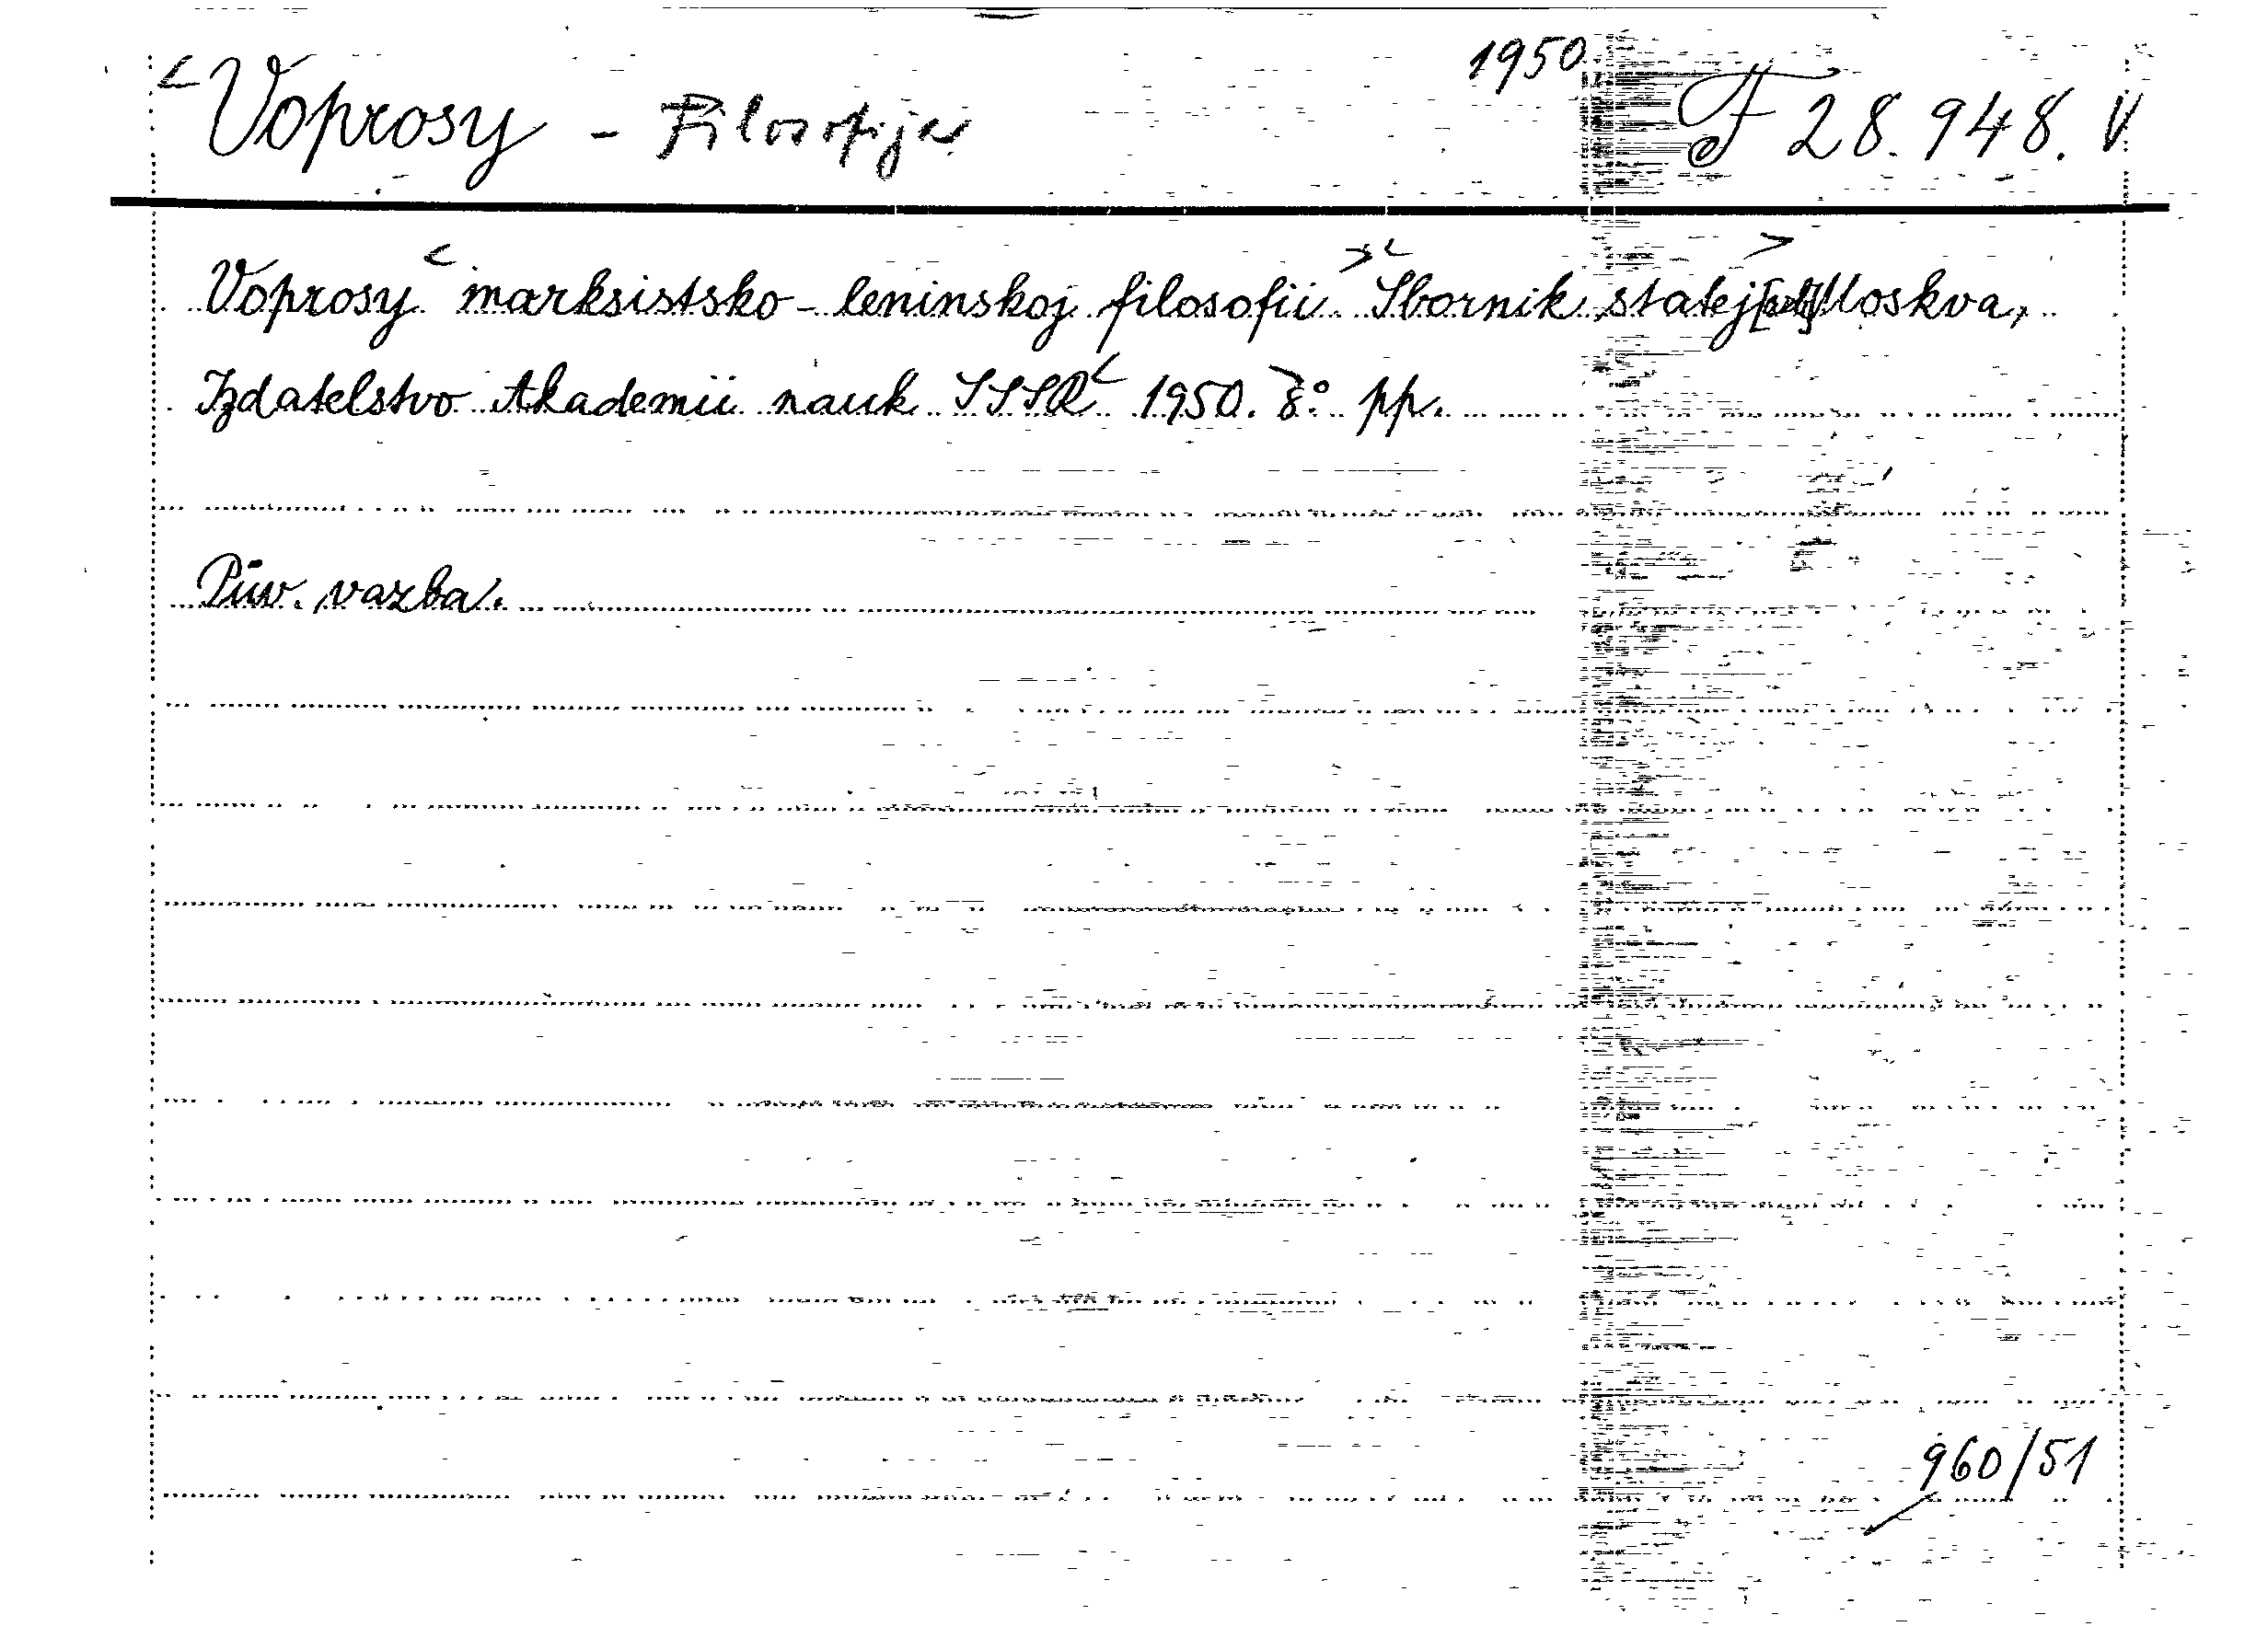 1950
Voprosy - Filosofija F 28.948. V
Voprosy marksistsko-leninskoj filosofii. Sbornik statej Moskva,
Izdatelstvo Akademii nauk SSSR 1950. 8° pp.
Pův. vazba.
960/51